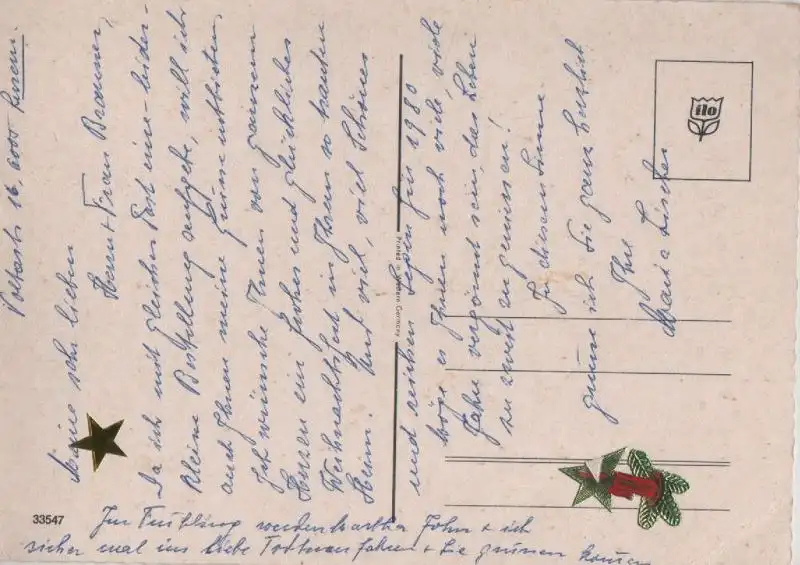 Voltastr. 16, 6000 Luzern.
Meine sehr lieben
Herr + Frau Brawner,
Da ich mit gleicher Post eine leider-
kleine Bestellung aufgebe, will ich
auch Ihnen meine Grüsse entbieten.
Ich wünsche Ihnen von ganzem
Herzen ein frohes und glückliches
Weihnachtsfest in Ihrem so trauten
Heim. Und viel, viel Schönes
und reichen Segen für 1980
Möge es Ihnen noch viele, viele
Jahre vergönnt sein, das Leben
zu zweit zu geniessen!
In diesem Sinne
grüsse ich Sie ganz herzlich
Ihre
Maria Lischer
Im Frühling werden Martha John + ich
sicher mal ins liebe Todtnau fahren + Sie grüssen kommen
ilo
Printed in Western Germany
33547